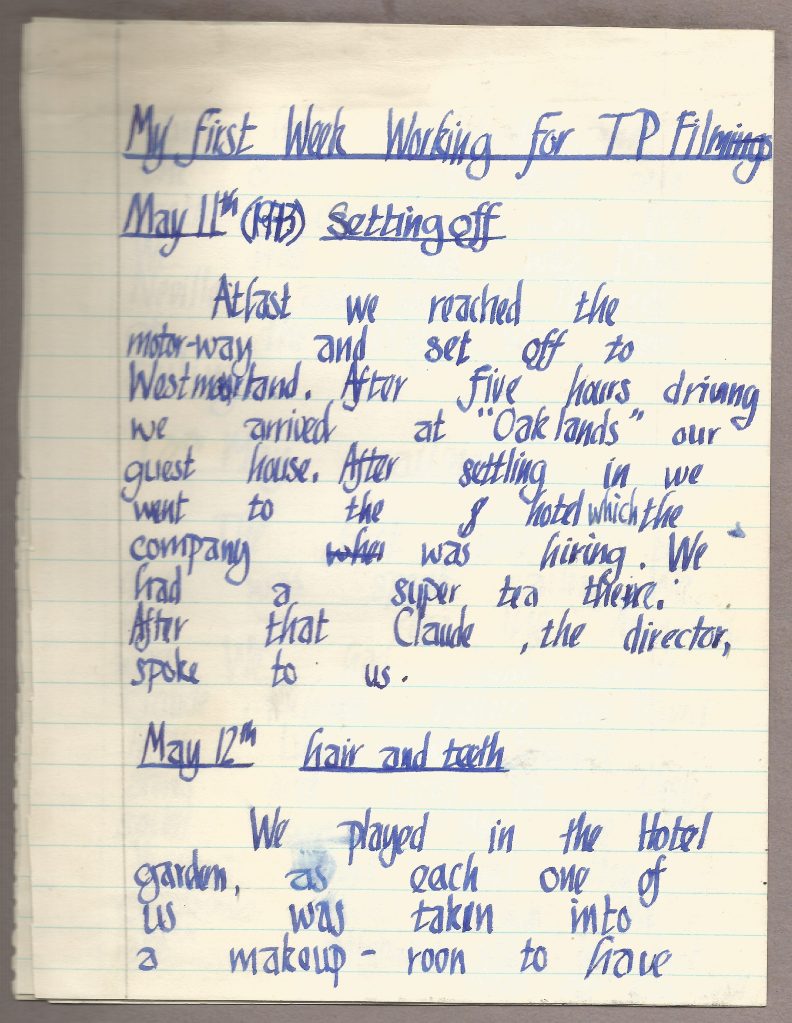 My first Week Working for TP Filmings
May 11th (1973) Setting off
Atlast we reached the
motor-way and set off to
Westmoorland. After five hours driving
we arrived at "Oaklands" our
guest house. After settling in we
went to the hotel which the
company was hiring. We
had a super tea there.
After that Claude, the director,
spoke to us.
May 12th hair and teeth
We played in the Hotel
garden, as each one of
us was taken into
a makeup-roon to have